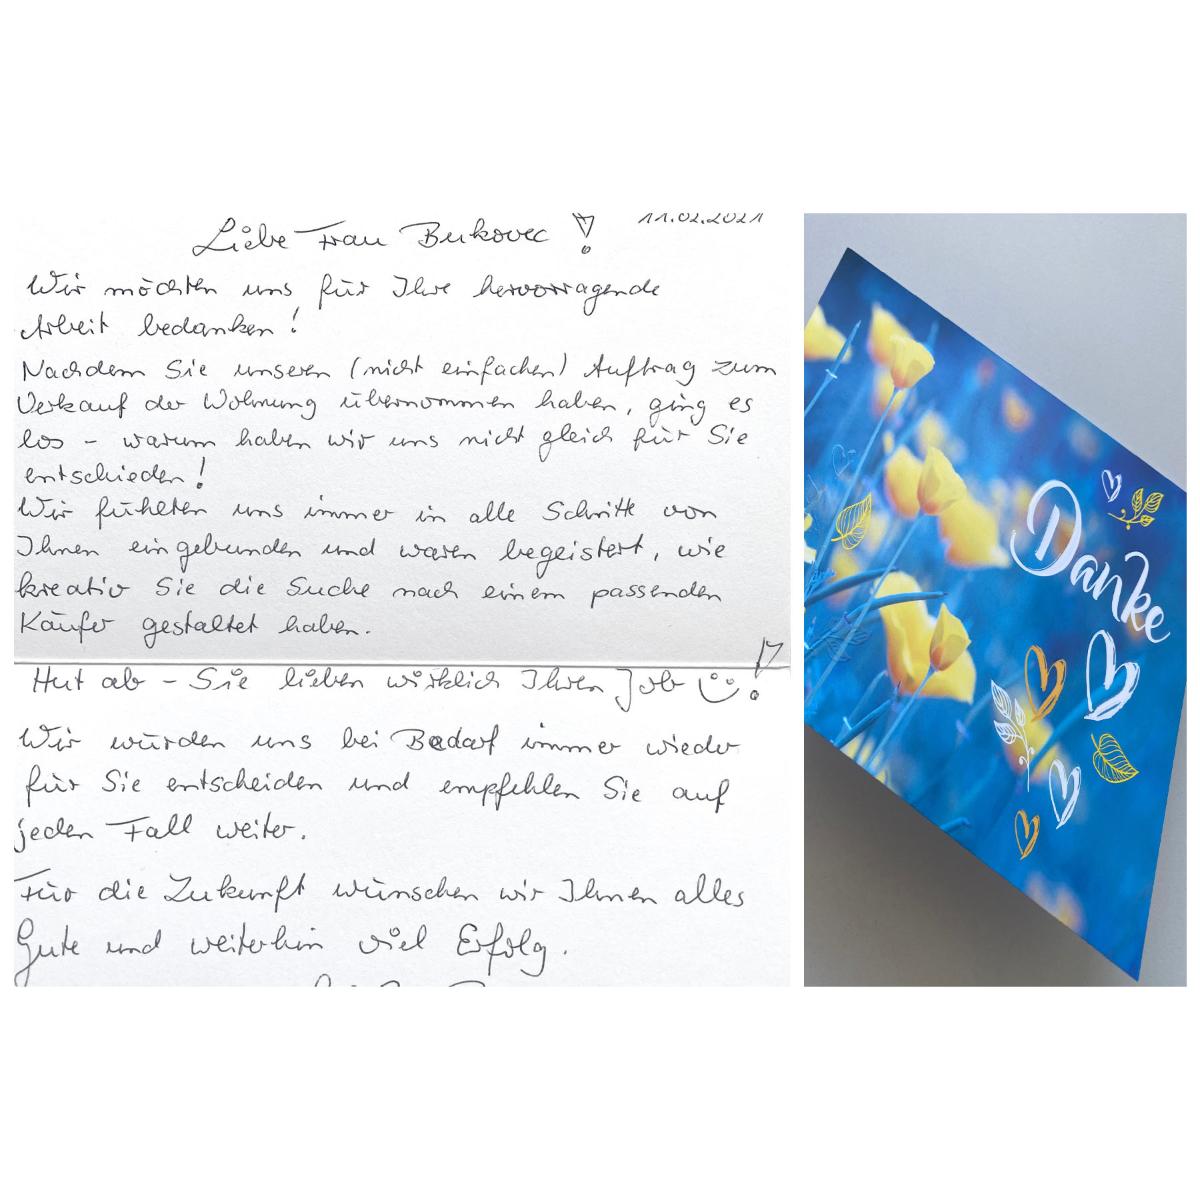 11.02.2021
Liebe Frau Berkovec!
Wir möchten uns für Ihre hervorragende
Arbeit bedanken!
Nachdem Sie unseren (nicht einfachen) Auftrag zum
Verkauf der Wohnung übernommen haben, ging es
los - warum haben wir uns nicht gleich für Sie
entschieden!
Wir fühlten uns immer in alle Schritte von
Ihnen eingebunden und waren begeistert, wie
kreativ Sie die Suche nach einem passenden
Käufer gestaltet haben.
Hut ab - Sie lieben wirklich Ihren Job !
Wir würden uns bei Bedarf immer wieder
für Sie entscheiden und empfehlen Sie auf
jeden Fall weiter.
Für die Zukunft wünschen wir Ihnen alles
Gute und weiterhin viel Erfolg.
Danke